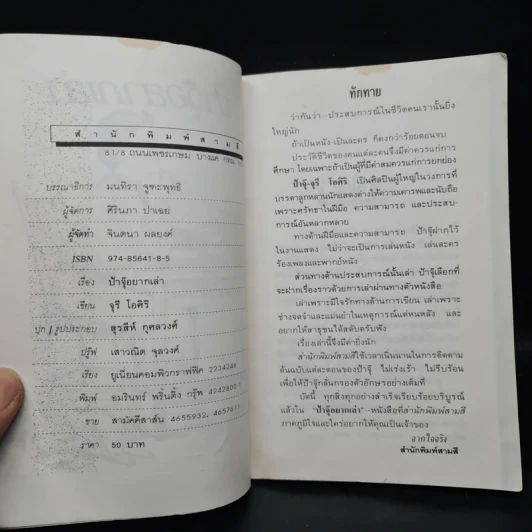 สำนักพิมพ์สามสี
81/8 ถนนเพชรเกษม บางแค กทม.
บรรณาธิการ มนทิรา จูฑะพุทธิ
ผู้จัดการ ศิรินภา ปาเฉย
ผู้จัดทำ จินตนา ผลยงค์
ISBN 974-85641-8-5
เรื่อง ป้าจุ๊อยากเล่า
เขียน จุรี โอศิริ
ปก / รูปประกอบ สุรสีห์ กุศลวงศ์
ปรู๊ฟ เสาวณิต จุลวงศ์
เรียง ยูเนี่ยนคอมพิวกราฟฟิค 2234246
พิมพ์ อมรินทร์ พริ้นติ้ง กรุ๊พ 4242800
ขาย สามัคคีสาส์น 4655932, 4657611
ราคา 50 บาท
ทักทาย
ว่ากันว่า—ประสบการณ์ในชีวิตคนเรานั้นยิ่ง
ใหญ่นัก
ถ้าเป็นหนัง-เป็นละคร ก็คงกว่าร้อยตอนจบ
ประวัติชีวิตของคนแต่ละคนจึงมีค่าควรแก่การ
ศึกษา โดยเฉพาะถ้าเป็นผู้ที่มีค่าสมควรแก่การยกย่อง
ป้าจุ๊-จุรี โอศิริ เป็นศิลปินผู้ใหญ่ในวงการที่
บรรดาลูกหลานนักแสดงต่างให้ความเคารพและนับถือ
เพราะศรัทธาในฝีมือ ความสามารถ และประสบ-
การณ์อันหลากหลาย
ทางด้านฝีมือและความสามารถ ป้าจุ๊ฝากไว้
ในงานแสดง ไม่ว่าจะเป็นการเล่นหนัง เล่นละคร
ร้องเพลงและพากย์หนัง
ส่วนทางด้านประสบการณ์นั้นเล่า ป้าจุ๊เลือกที่
จะฝากเรื่องราวด้วยการเล่าผ่านทางตัวหนังสือ
เล่าเพราะมีใจรักทางด้านการเขียน เล่าเพราะ
ช่างจดจำและแม่นยำในเหตุการณ์แต่หนหลัง และ
อยากให้สาธุชนได้สดับรับฟัง
เรื่องเล่านี้จึงมีค่ายิ่งนัก
สำนักพิมพ์สามสีใช้เวลาเนิ่นนานในการติดตาม
ต้นฉบับแต่ละตอนของป้าจุ๊ ไม่เร่งเร้า ไม่รีบร้อน
เพื่อให้ป้าจุ๊กลั่นกรองตัวอักษรอย่างเต็มที่
บัดนี้ ทุกสิ่งทุกอย่างสำเร็จเรียบร้อยบริบูรณ์
แล้วใน "ป้าจุ๊อยากเล่า"—หนังสือที่สำนักพิมพ์สามสี
ภาคภูมิใจและใคร่อยากให้คุณเป็นเจ้าของ
จากใจจริง
สำนักพิมพ์สามสี